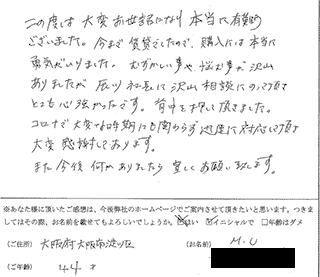 この度は大変お世話になり本当に有難う
ございました。今まで賃貸でしたので、購入には本当に
勇気がいりました。むずかしい事や悩む事が沢山
ありましたが 私に沢山相談にのって頂き
とても心強かったです。背中を押して頂きました。
コロナで大変な時期にも関わらず迅速に対応して頂き
大変感謝しております。
また今後何かありましたら宜しくお願い致します。
※あなた様に頂いたご感想は、今後弊社のホームページでご案内させて頂きたいと思います。つきま
してはその際、お名前を載せてもよろしいでしょうか。□はい ☑イニシャルで □年齢はダメ
(ご住所) 大阪府大阪市淀川区 (お名前) M.U
(ご年齢) 44才